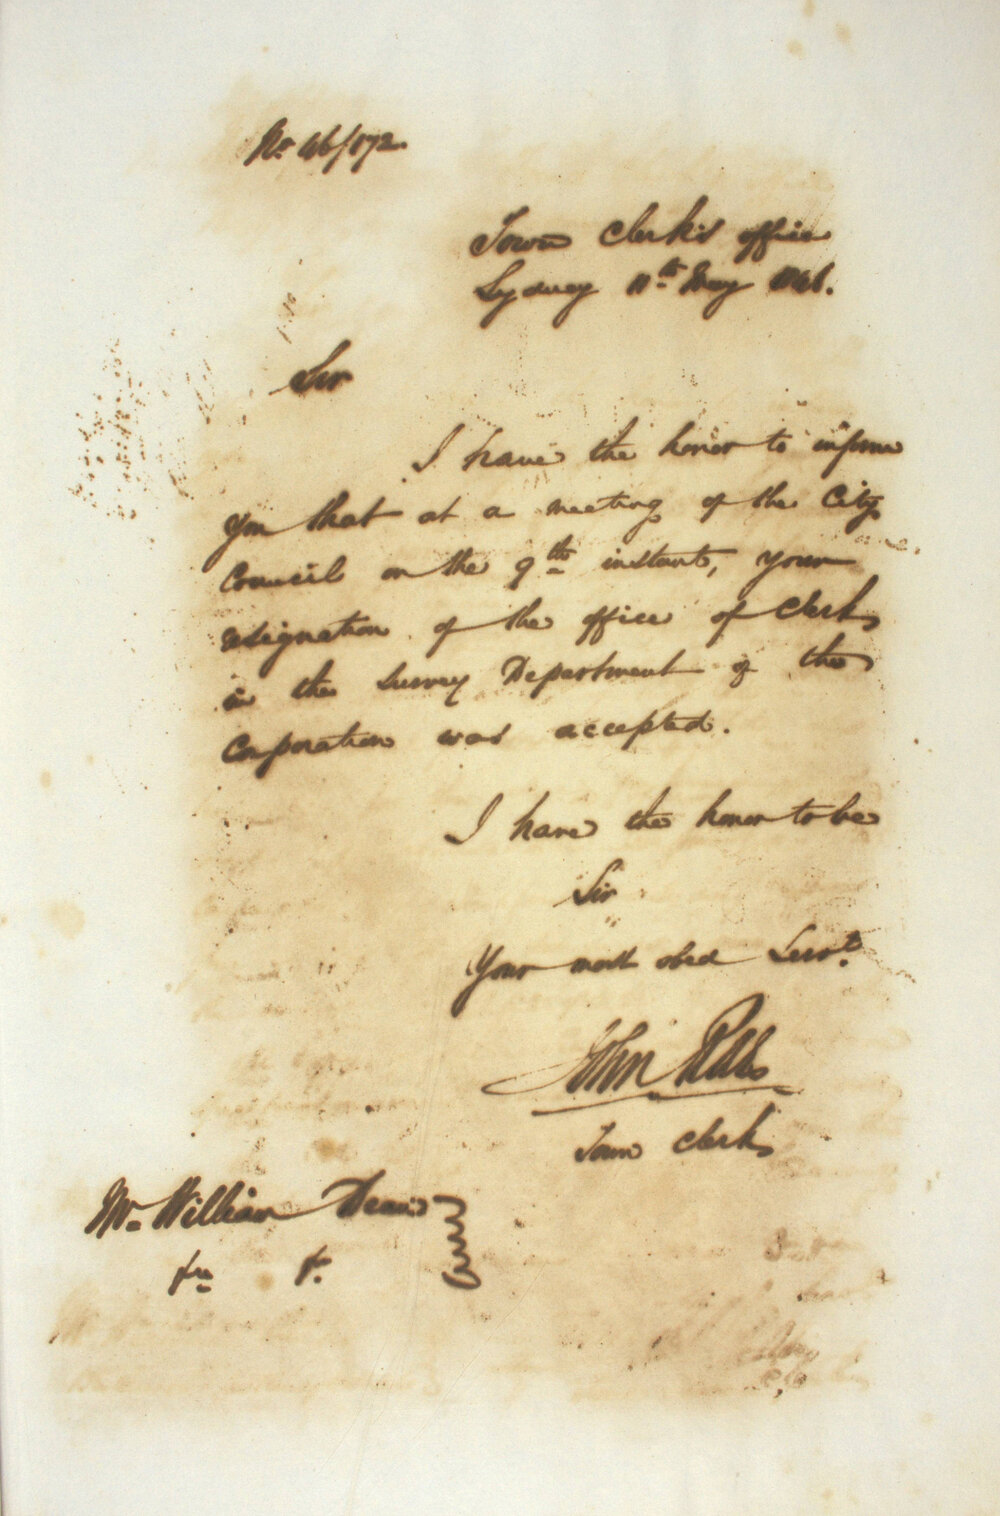 No 46/172.
Town Clerk's office
Sydney 11th May 1846.
Sir
I have the honor to inform
you that at a meeting of the City
Council on the 9th instant, your
resignation of the office of Clerk
in the Survey Department of the
Corporation was accepted.
I have the honor to be
Sir
Your most obed Servt.
John Rae
Town Clerk
Mr. William Dean